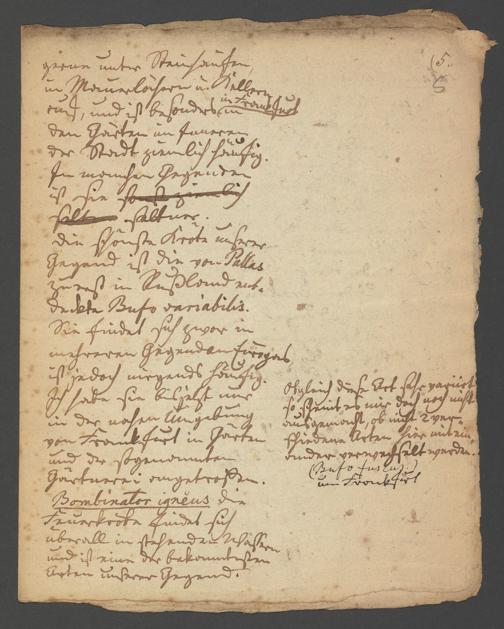 (5.
gerne unter Steinhaufen,
in Mauerlöchern u. Kellern
auf, und ist besonders in
in Frankfurt
den Gärten im Inneren
der Stadt ziemlich häufig.
In manchen Gegenden
ist sie
seltner.
die schönste Kröte unserer
Gegend ist die von Pallas
zuerst in Rußland ent-
deckte Bufo variabilis.
Sie findet sich zwar in
mehreren Gegenden Europas
ist jedoch nirgends häufig.
Ich habe sie bis jetzt nur
in der nahen Umgebung
von Frankfurt in Gärten
und der sogenannten
Gärtnerei angetroffen.
Bombinator igneus die
Feuerkröte findet sich
überall in stehenden Wassern
und ist eine der bekanntesten
Arten unserer Gegend.
Obgleich diese Art sehr variirt
so scheint es mir doch noch nicht
ausgemacht, ob nicht 2 ver-
schiedene Arten hier mitein-
ander verwechselt werden.
(Bufo
um Frankfurt